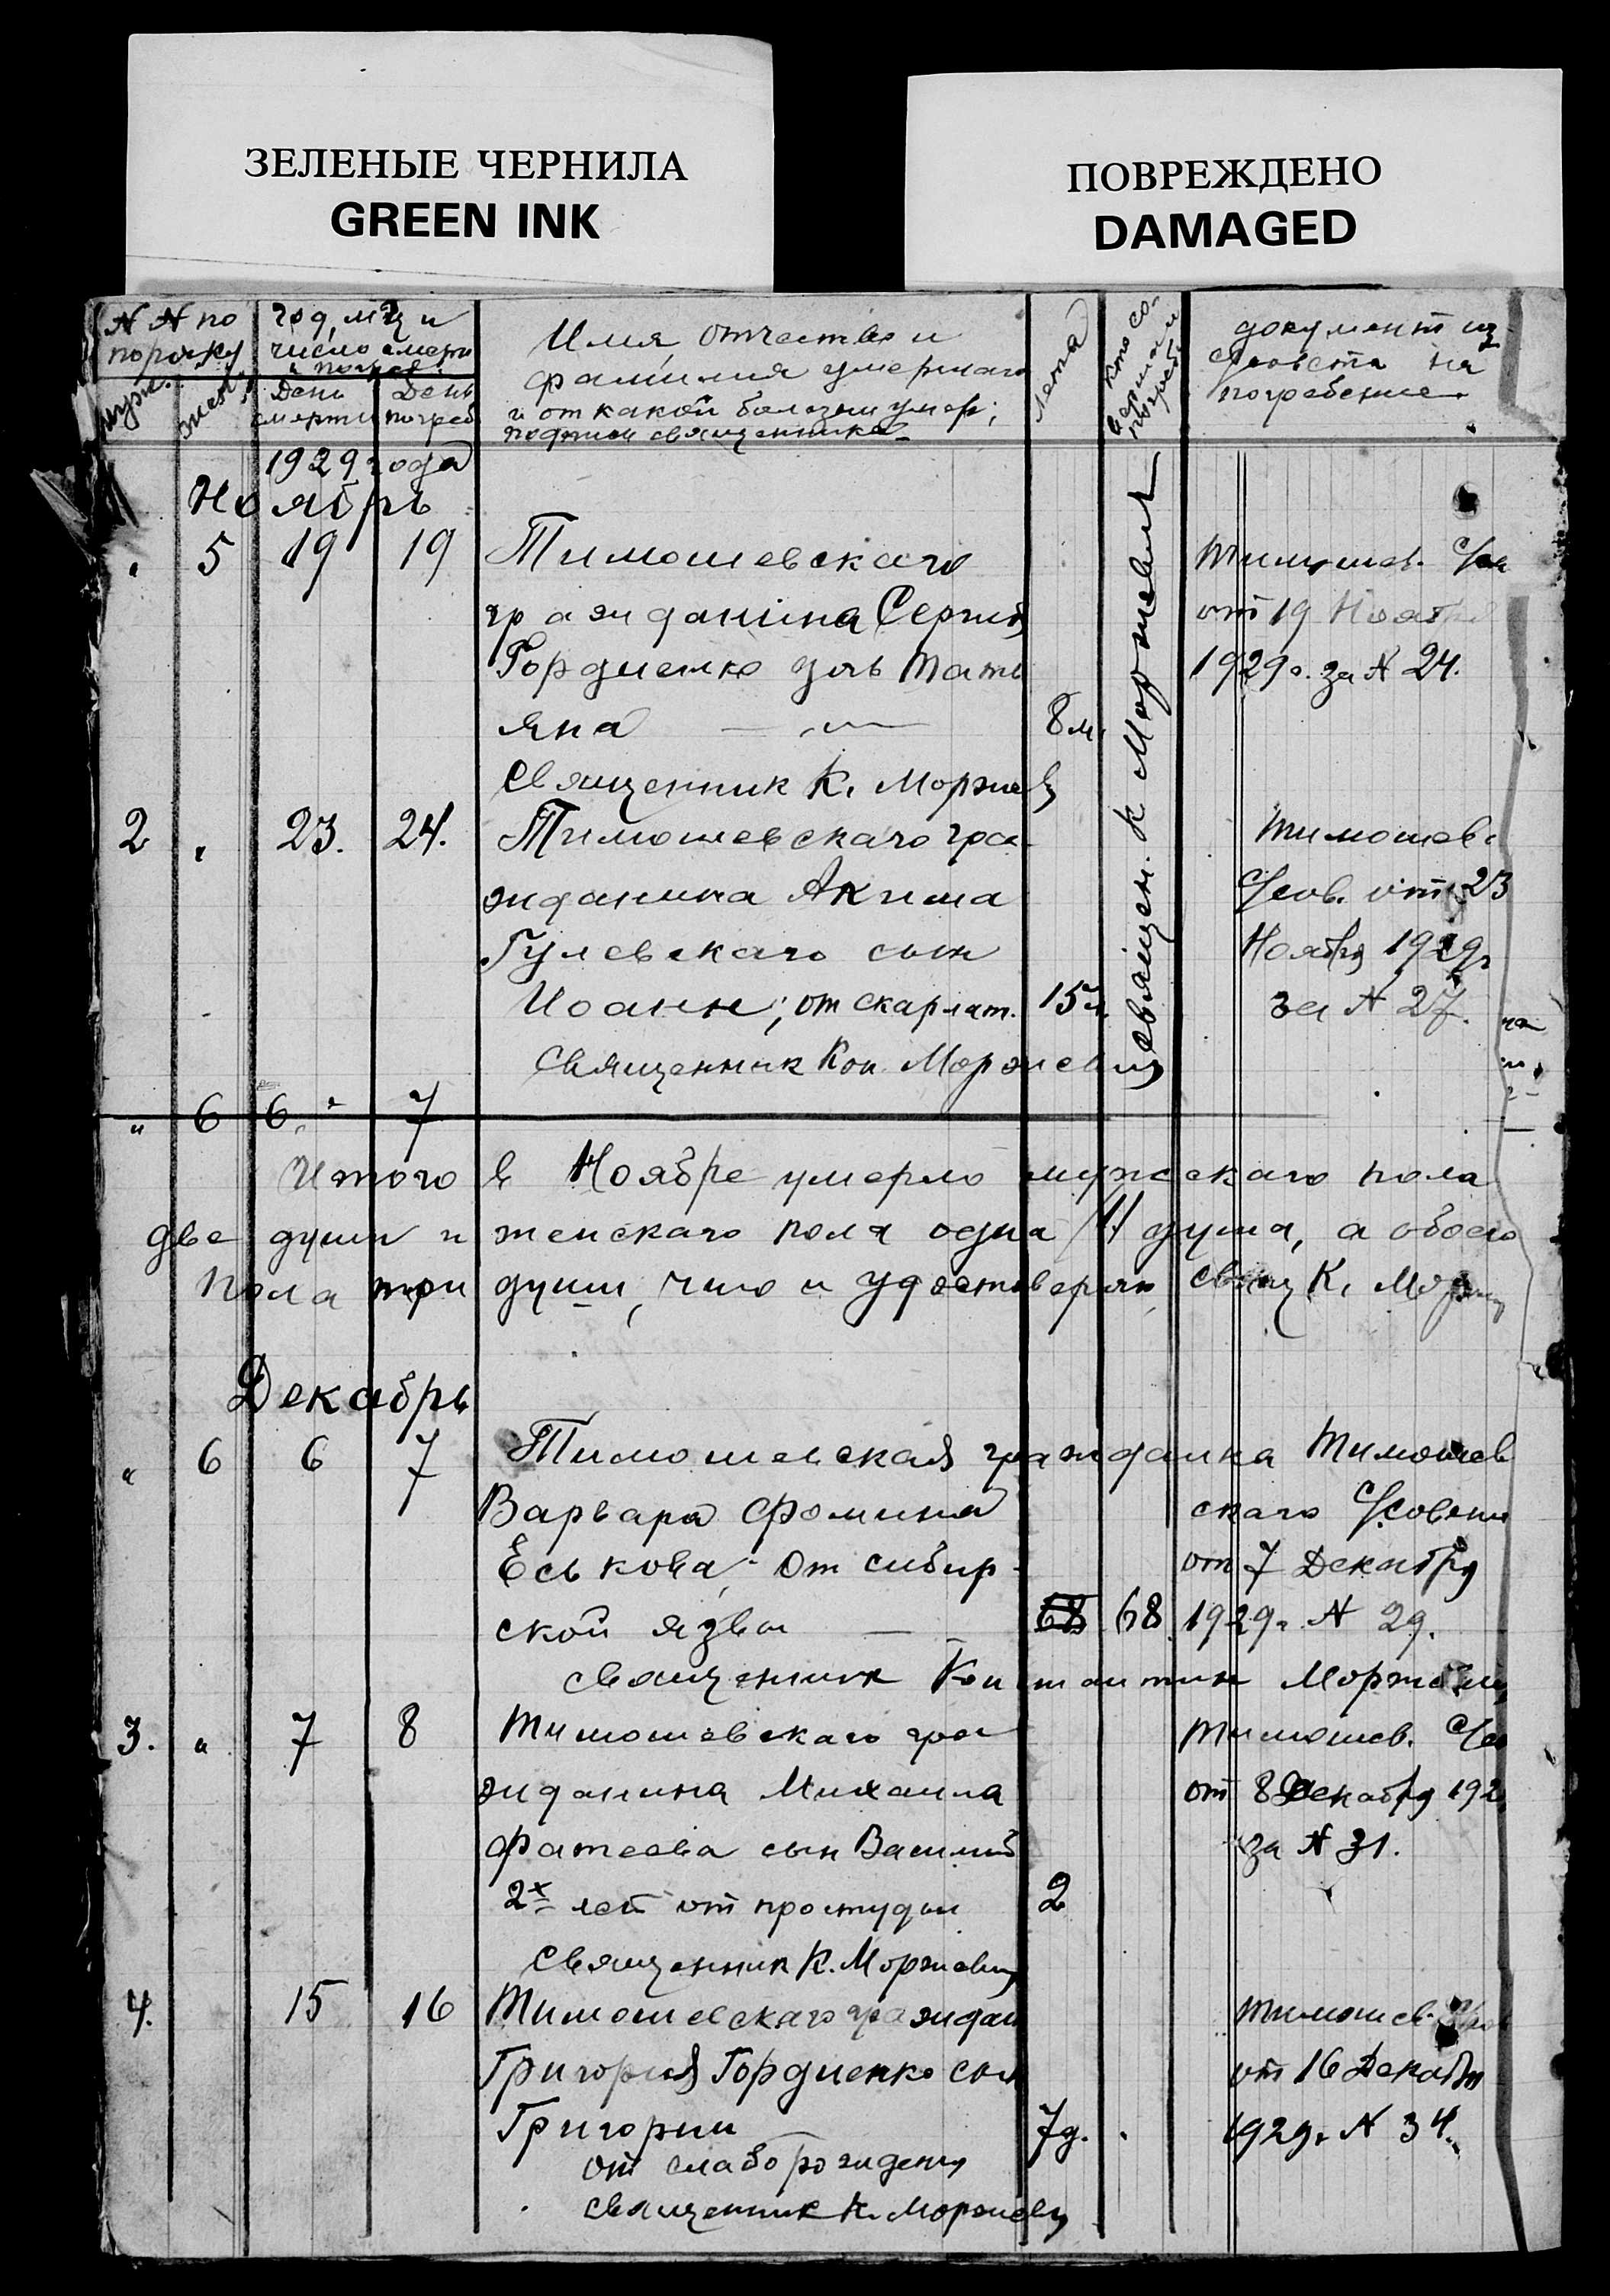 ЗЕЛЕНЫЕ ЧЕРНИЛА
GREEN INK
ПОВРЕЖДЕНО
DAMAGED
№ № по
порядку
муж.
жен.
год, м-ц и
число смерти
и погреб.
День
смерти
День
погреб
Имя, отчество и
фамилия умершаго
и от какой болезни умер;
подписи священника
Лета
кто со-
погреб.
документ из
с/совета на
погребение
1929 года
Ноябрь
" 5 19 19 Тимошевскаго Тимошев.
гражданина Сергия от 19 Нояб
Гордиенко дочь Тать 1929 г. за № 24.
яна — " — 8 м.
Священник К. Моржев
Священ. К Моржевич
2 " 23. 24. Тимошевскаго гра Тимошев
жданина Акима С/сов. от 23
Гулевскаго сын Ноября 1929 г
Иоанн; от скарлат. 15 л. за № 27.
Священник Кон Моржевич
" 6 6 " 7
Итого в Ноябре умерло мужскаго пола
две души и женскаго пола одна /1/ душа, а обоего
пола три души, что и удостоверяю свящ К. Морж
Декабрь
" 6 6 7 Тимошевская гражданка Тимошев
Варвара Фомина скаго С/совета
Еськова; от сибир- от 7 Декабря
ской язвы — 68 68 1929 г. № 29.
священник Константин Моржевич
3. " 7 8 Тимошевскаго гра Тимошев. С/со
жданина Михаила от 8 Декабря 192
Фатеева сын Василий за № 31.
2х лет от простуды 2
священник К. Моржевич
4. 15 16 Тимошевскаго граждан Тимошев.
Григория Гордиенко сын от 16 Декабря
Григорий 7 д. " 1929 г № 34.
от слабо рождения
священник К. Моржевич